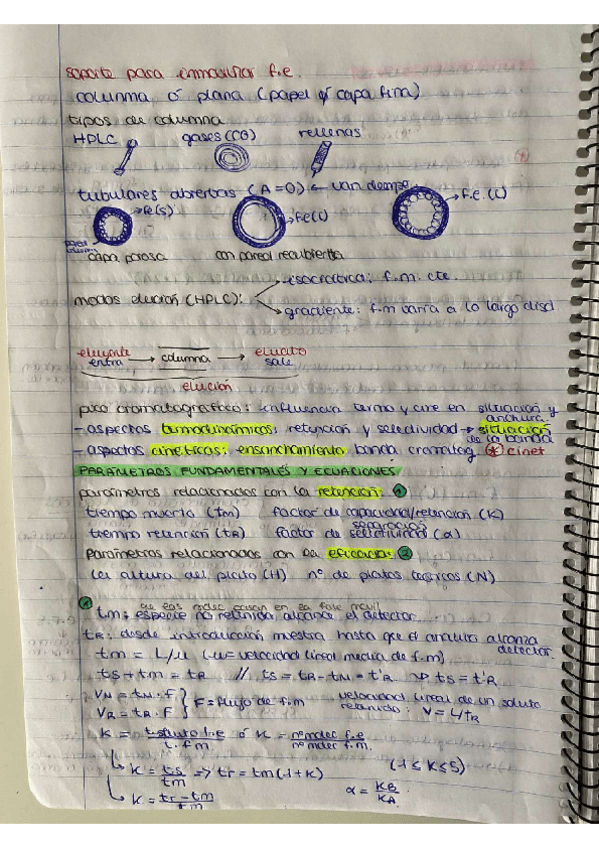 soporte para inmovilizar f.e.
columna ó plana (papel ó capa fina)
tipos de columna
HPLC gases (CG) rellenas
tubulares abiertas (A=0) ← van deemter
fe(s) fe(l) f.e.(l)
capa porosa con pared recubierta
modos elución (HPLC): isocrática: f.m. cte.
gradiente: f.m varía a lo largo disol
eluyente entra → columna → eluato sale
elución
pico cromatográfico: influencia termo y cine en situación y anchura
- aspectos termodinámicos: retención y selectividad → situación de la banda
- aspectos cinéticos: ensanchamiento banda cromatog. * cinet
PARÁMETROS FUNDAMENTALES Y ECUACIONES
parámetros relacionados con la retención: 1
tiempo muerto (tm) factor de capacidad/retención (K)
tiempo retención (tR) factor de separación selectividad (α)
Parámetros relacionados con la eficacia: 2
la altura del plato (H) nº de platos teóricos (N)
1 que las molec pasan en la fase móvil
tm: especie no retenida alcance el detector
tR: desde introducción muestra hasta que el analito alcanza detector.
tm = L/u (u=velocidad lineal media de f.m)
ts + tm = tR // ts = tR - tm = t'R ts = t'R
VM = tM · F
VR = tR · F } F=flujo de f.m velocidad lineal de un soluto retenido: V = L/tR
K = t soluto f.e / t. f.m ó K = nºmolec f.e / nºmolec f.m.
K = ts/tm => tr = tm(1+K) (1≤K≤5)
K = tr-tm/tm α = KB/KA